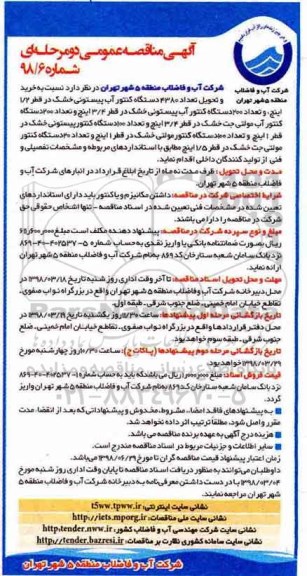 آگهی مناقصه عمومی دو مرحله‌ای
شماره ۹۸/۶
شرکت آب و فاضلاب
منطقه ۵ شهر تهران
شرکت آب و فاضلاب منطقه ۵ شهر تهران در نظر دارد نسبت به خرید
و تحویل تعداد ۴۳۸۰ دستگاه کنتور آب پیستونی خشک در قطر ۱/۲
اینچ و تعداد ۲۰۰ دستگاه کنتور آب پیستونی خشک در قطر ۳/۴ اینچ و تعداد
کنتور آب مولتی جت خشک در قطر ۳/۴ اینچ و تعداد دستگاه کنتور پیستونی خشک در
قطر ۱ اینچ و تعداد دستگاه کنتور مولتی خشک در قطر ۱ اینچ و تعداد دستگاه کنتور
مولتی جت خشک در قطر ۱/۵ اینچ مطابق با استانداردهای مربوطه و مشخصات تفصیلی و
فنی از تولید کنندگان داخلی اقدام نماید.
مدت و محل تحویل: ظرف مدت نه ماه از تاریخ ابلاغ قرارداد در انبارهای شرکت آب و
فاضلاب منطقه ۵ شهر تهران.
شرایط اختصاصی شرکت در مناقصه: داشتن مکانیزم و یا کنتور باید دارای استانداردهای
تعیین شده در مشخصات فنی تعیین شده در اسناد مناقصه - تنها اشخاص حقوقی حق
شرکت در مناقصه را دارا می باشند.
مبلغ و نوع سپرده شرکت در مناقصه: پیشنهاد دهنده مکلف است مبلغ
ریال بصورت ضمانتنامه بانکی یا واریز نقدی به حساب شماره
نزد بانک سامان شعبه ستارخان کد ۸۶۹ به نام شرکت آب و فاضلاب منطقه ۵ شهر تهران
ارائه نماید.
مهلت و محل تحویل اسناد مناقصه: تا آخر وقت اداری روز شنبه تاریخ ۱۳۹۸/۰۳/۱۸ در
محل دبیرخانه شرکت آب و فاضلاب منطقه ۵ شهر تهران واقع در بزرگراه نواب صفوی،
تقاطع خیابان امام خمینی، ضلع جنوب شرقی، طبقه اول.
تاریخ بازگشائی مرحله اول پیشنهادها: ساعت روز یکشنبه تاریخ ۱۳۹۸/۰۳/۱۹ در
محل دفتر قراردادها واقع در بزرگراه نواب صفوی، تقاطع خیابان امام خمینی، ضلع
جنوب شرقی، طبقه سوم خواهد بود.
تاریخ بازگشائی مرحله دوم پیشنهادها (پاکات ج): ساعت روز چهارشنبه مورخ
خواهد بود.
قیمت فروش اسناد: مبلغ ریال می باشد که باید به حساب شماره
نزد بانک سامان شعبه ستارخان کد ۸۶۹ به نام شرکت آب و فاضلاب منطقه ۵ شهر تهران واریز
گردد.
به پیشنهادهای فاقد امضاء، مشروط، مخدوش و پیشنهاداتی که بعد از انقضا، مدت
مقرر واصل شود، مطلقا ترتیب اثر داده نخواهد شد.
هزینه درج آگهی به عهده برنده مناقصه می باشد.
سایر اطلاعات و جزئیات مربوط در اسناد مناقصه مندرج است.
زمان اعتبار پیشنهاد قیمت مناقصه گران تا مورخ ۱۳۹۸/۰۶/۲۹ می باشد.
داوطلبان می توانند به منظور دریافت اسناد مناقصه تا پایان وقت اداری روز شنبه مورخ
۱۳۹۸/۰۳/۰۴ با در دست داشتن معرفی نامه به دبیرخانه شرکت آب و فاضلاب منطقه ۵
شهر تهران مراجعه نمایند.
نشانی سایت اینترنتی: t5ww.tpww.ir
نشانی سایت ملی مناقصات: http://iets.mporg.ir
نشانی سایت شرکت مهندسی آب و فاضلاب کشور: http:tender.nww.ir
نشانی سایت سامانه کشوری نظارت بر مناقصات: http://tender.bazresi.ir
شرکت آب و فاضلاب منطقه ۵ شهر تهران